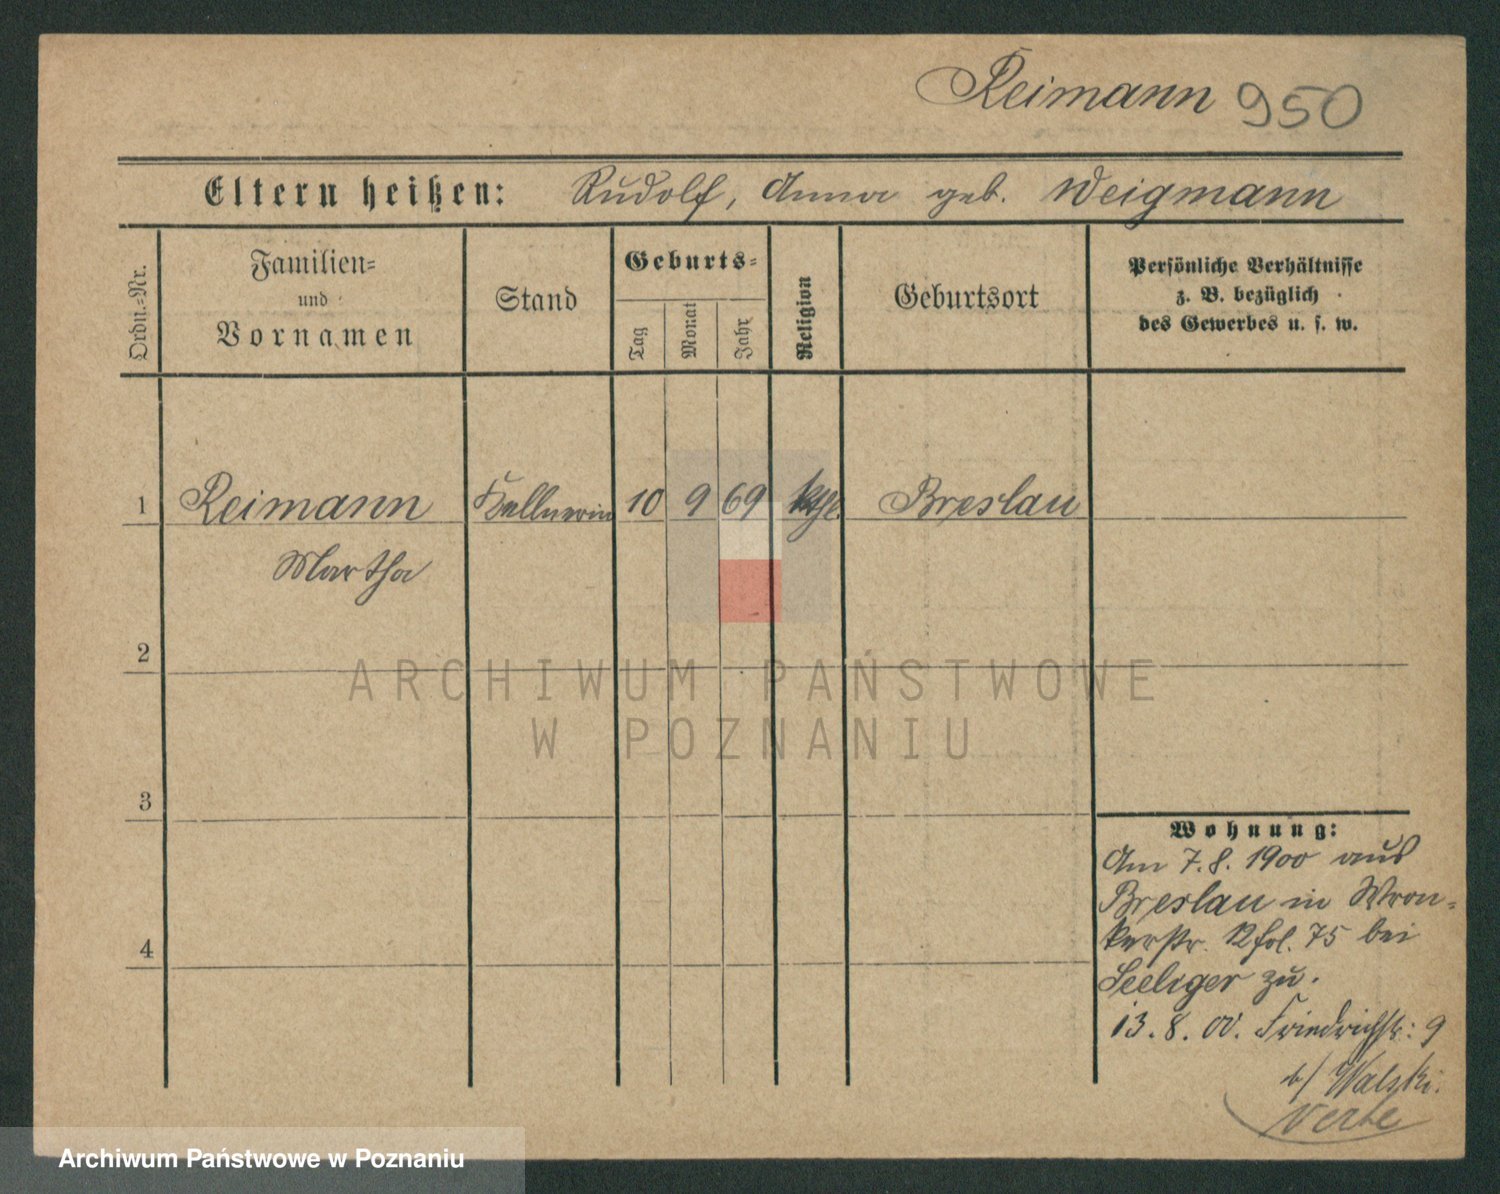 Reimann 950
Eltern heißen: Rudolf, Anna geb. Weigmann
Ordn.-Nr.
Familien-
und
Vornamen
Stand
Geburts-
Tag
Monat
Jahr
Religion
Geburtsort
Persönliche Verhältnisse
z. B. bezüglich
des Gewerbes u. s. w.
1 Reimann Kellnerin 10 9 69 kth. Breslau
Martha
2
3
4
ARCHIWUM PAŃSTWOWE
W POZNANIU
Wohnung:
Am 7.8.1900 aus
Breslau in Wron-
kerstr. 75 bei
Seeliger zu.
13.8.00. Friedrichstr: 9
b/ Walski.
Archiwum Państwowe w Poznaniu